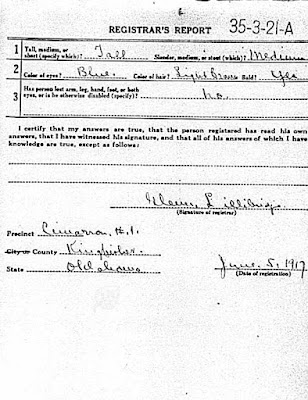 REGISTRAR'S REPORT 35-3-21-A
1 Tall, medium, or short (specify which)? Tall Slender, medium, or stout (which)? Medium
2 Color of eyes? Blue Color of hair? Light Brown Bald? Yes
3 Has person lost arm, leg, hand, foot, or both eyes, or is he otherwise disabled (specify)? No.
I certify that my answers are true, that the person registered has read his own
answers, that I have witnessed his signature, and that all of his answers of which I have
knowledge are true, except as follows:
Glenn
(Signature of registrar)
Precinct Cimarron,
City or County Kingfisher
State Oklahoma
June 5, 1917
(Date of registration)